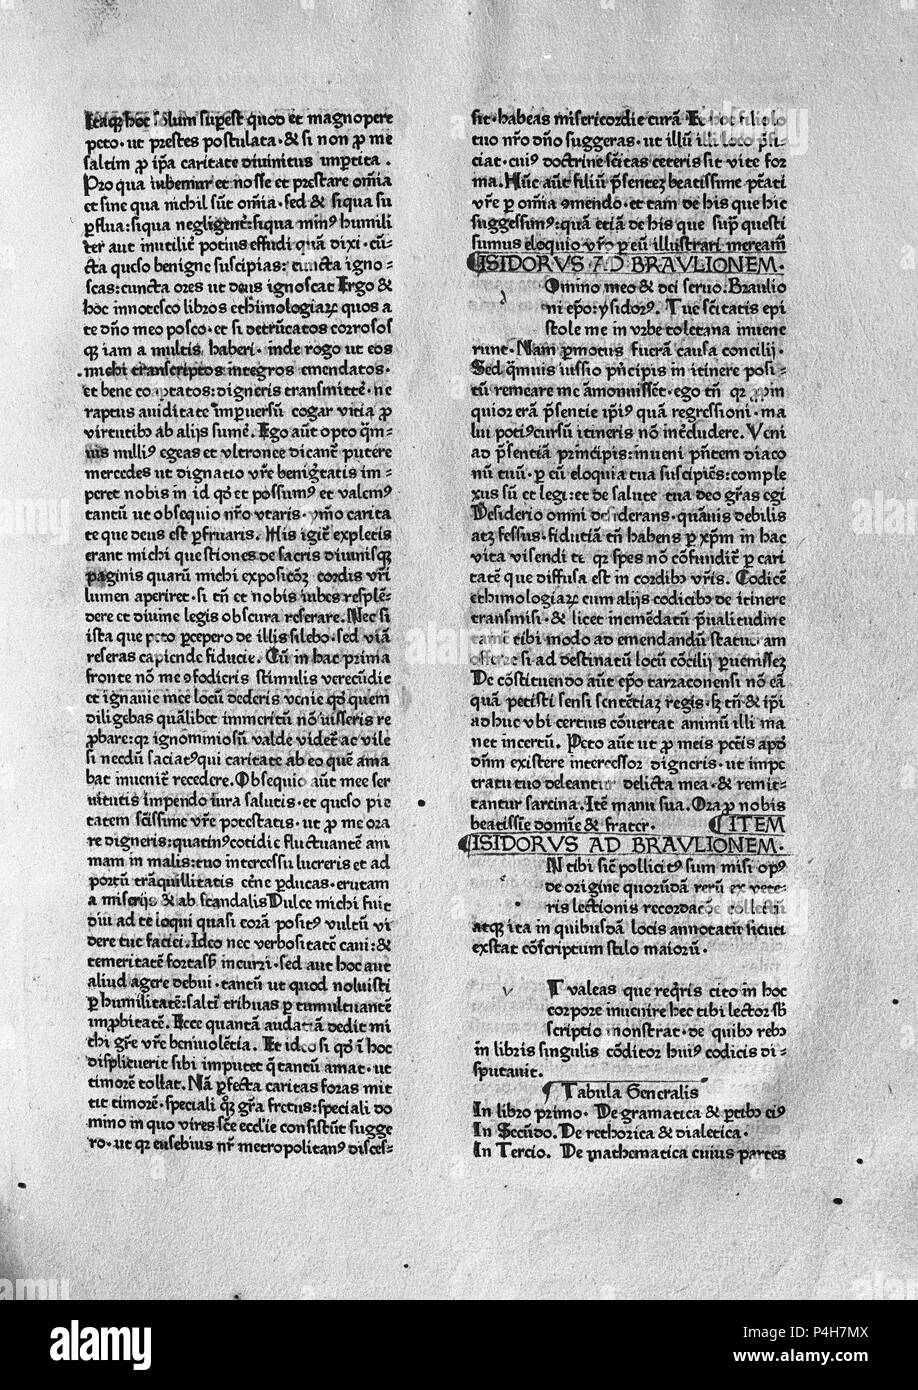 Itaq; hoc solum supest quod et magnopere
peto· ut prestes postulata·& si non p me
saltim p ipa caritate diuinitus imptita·
Pro qua iubemur et nosse et prestare omia
et sine qua nichil sut omia· sed & siqua su
pflua:siqua negligent:siqua min9 humili
ter aut inutilie potius effudi quā dixi·cū-
cta queso benigne suscipias: cuncta igno-
scas:cuncta ores ut deus ignoscat Ergo &
hoc innotesco libros ethimologiaꝝ quos a
te dño meo posco·et si detrūcatos corrosos
q; iam a multis haberi· inde rogo ut eos
michi transcriptos integros emendatos·
et bene coaptatos:digneris transmittē·ne
raptus auiditate impuersū cogar vitia p
virtutib9 ab alijs sumē. Ego aūt opto q̄m-
uis nulli9 egeas et vltronce dicant putere
mercedes ut dignatio vre benigtatis im-
peret nobis in id qd et possum9 et valem9
tantū ut obsequio nro vtaris· ymo carita
te que deus est pfruaris. His igit expletis
erant michi questiones de sacris diuinisq;
paginis quarū michi expositoꝫ cordis vri
lumen aperiret·si tn et nobis iubes resple-
dere et diuine legis obscura reserare. Nec si
ista que peto pcepero de illis silebo·sed viā
reseras capiende fiducie. Cū in hac prima
fronte nō me ꝯfodicris stimulis verecūdie
et ignauie mee locū dederis venie qd quem
diligebas quālibet immeritū nō iusseris re
pbare:qꝛ ignominiosū valde videt ac vile
si necdū saciat9qui caritate ab eo quē ama
bat inuenit recedere. Obsequio aūt mee ser
uitutis impendo iura salutis·et queso pie
tatem sctissime vre potestatis·ut p me ora
re digneris:quatin9cotidie fluctuantē ani
mam in malis:tuo intercessu lucreris et ad
portū trāquillitatis etne pducas·erutam
a miserijs & ab scandalisDulce michi fuit
diu ad te loqui quasi corā posit9 vultū vi
dere tue faciei. Ideo nec verbositatē caui:&
temeritatē fortassis incurri·sed aut hoc aut
aliud agere debui·tantū ut quod noluisti
p humilitatē:saltī tribuas p tumultuantē
impbitatē. Ecce quantā audatiā dedit mi
chi gre vre beniuolētia. Et ideo si qd i hoc
displicuerit sibi imputet q̄ tantū amat·ut
timorē tollat. Nā pfecta caritas foras mit
tit timorē·speciali q; gra fretus:speciali do
mino in quo vires scte ecclie consistūt sugge
ro·ut qꝛ eusebius nr metropolitan9 disces-
sit·habeas misericordie curā Et hoc filio
tuo nro dño suggeras·ut illū illi loco pfi-
ciat·cui9 doctrine sctitas ceteris sit vite for
ma. Hūc aūt filiū psentez beatissime ptati
vre p omia ꝯmendo·et tam de his que hic
suggessim9:quā etiā de his que sup questi
sumus eloquio vro p eū illustrari meream
ISIDORVS AD BRAVLIONEM.
Omino meo & dei seruo. Braulio
ni epo:ysidor9. Tue sctitatis epi
stole me in vrbe toletana inuene
runt· Nam pmotus fuerā causa concilij·
Sed q̄muis iussio pncipis in itinere posi-
tū remeare me āmonuisset·ego tn qꝛ ppin
quior erā psentie ipi9 quā regressioni·ma
lui poti9cursū itineris nō intcludere. Veni
ad psentiā principis:inueni pntem diaco
nū tuū·p eū eloquia tua suscipiēs:comple
xus sū et legi:et de salute tua deo gras egi
Desiderio omni desiderans·quāuis debilis
atqꝫ fessus·fidutiā tn habens p xpm in hac
vita visendi te qꝛ spes nō cōfundit p cari
tatē que diffusa est in cordib9 vris. Codicē
ethimologiaꝝ cum alijs codicib9 de itinere
transmisi·& licet inemēdatū pualitudine
tamē tibi modo ad emendandū statueram
offerre si ad destinatū locū cōcilij puenissez
De cōstituendo aūt epo tarzaconensi nō eā
quā petisti sensi sententiaꝫ regis·sꝫ tn & ipi
adhuc vbi certius cōuertat animū illi ma
net incertū. Peto aūt ut p meis pctis apd
dnm existere intercessor digneris·ut impe
tratu tuo deleantur delicta mea·& remit-
tantur facinora. Ite manu sua. Ora p nobis
beatissie domie & frater· ITEM
ISIDORVS AD BRAVLIONEM.
N tibi sic pollicit9 sum misi op9
de origine quorūdā rerū ex vete-
ris lectionis recordacōe collectū
atq; ita in quibusdā locis annotatū sicuti
exstat cōscriptum stilo maiorū·
v T valeas que reqris cito in hoc
corpore inuenire hec tibi lector sb
scriptio monstrat·de quib9 reb9
in libris singulis cōditor hui9 codicis di-
sputauit.
Tabula Generalis
In libro primo· De gramatica & ptib9 ei9
In Secūdo. De rethorica & dialetica·
In Tercio. De mathematica cuius partes
alamy
P4H7MX
www.alamy.com